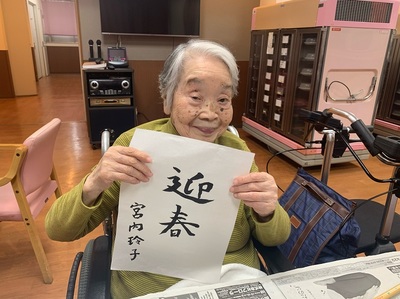 迎春
宮内玲子